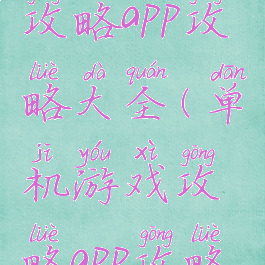 攻略app攻
lüè dà quán dān
略大全(单
jī yóu xì gōng
机游戏攻
lüè gōng lüè
略app攻略